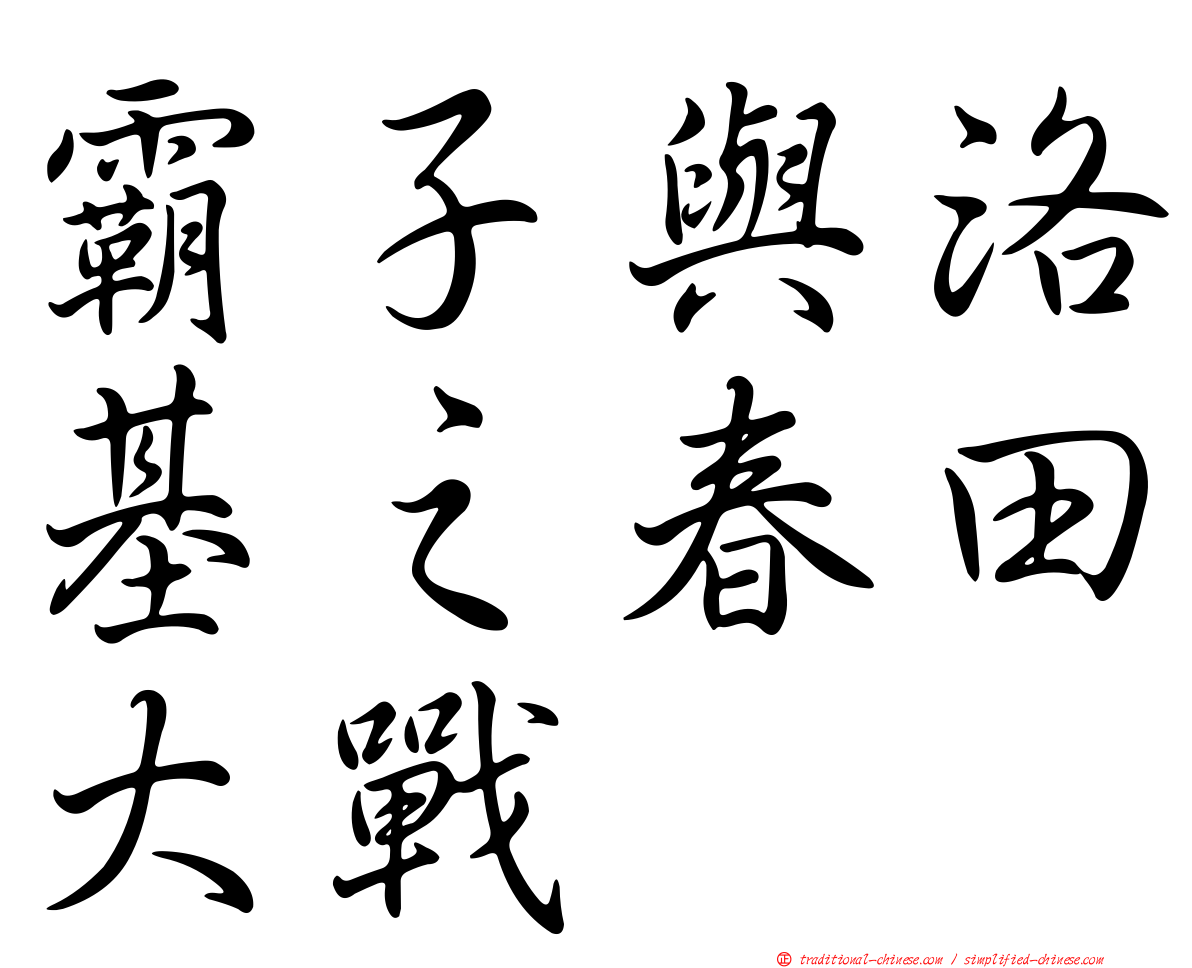 霸子與洛
基之春田
大戰
㊣ traditional-chinese.com / simplified-chinese.com